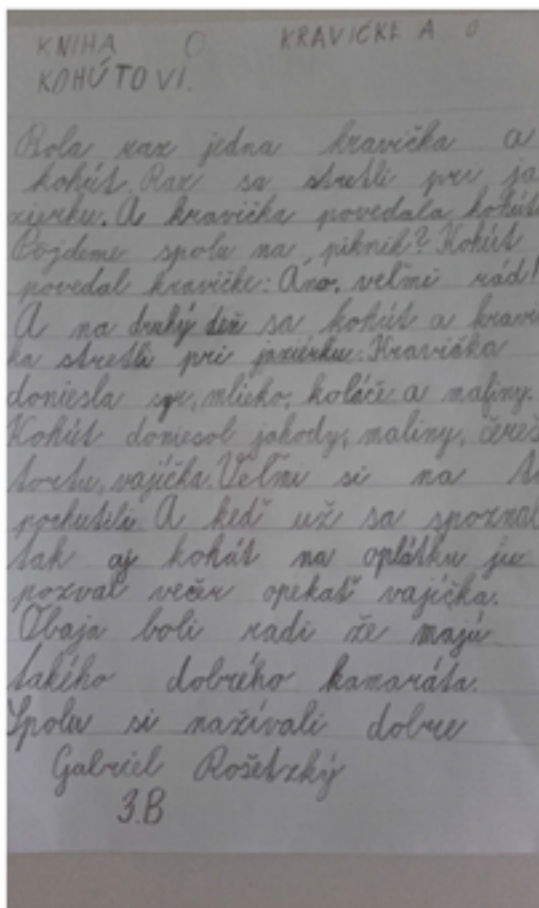 KNIHA O KRAVIČKE A O
KOHÚTOVI.
Bola raz jedna kravička a
kohút. Raz sa stretli pri ja
zierku. A kravička povedala kohút
Pojdeme spolu na piknik? Kohút
povedal kravičke: Áno, veľmi rád!
A na druhý deň sa kohút a kravi
ka stretli pri jazierku. Kravička
doniesla syr, mlieko, koláče a maliny.
Kohút doniesol jahody, maliny, čereš
tortu, vajíčka. Veľmi si na t
pochutili. A keď už sa spoznal
tak aj kohút na oplátku ju
pozval večer opekať vajíčka.
Obaja boli radi že majú
takého dobrého kamaráta.
Spolu si nažívali dobre
Gabriel Rošetzký
3.B